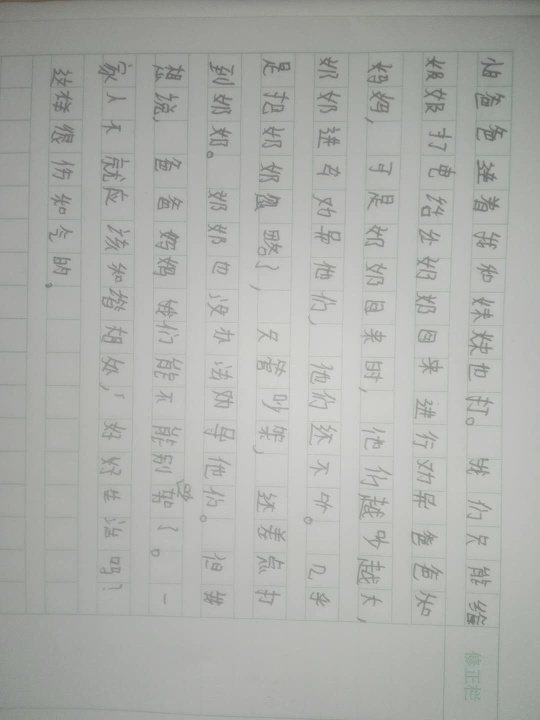 怕爸爸连着我和妹妹也打。我们只能给
奶奶打电话让奶奶回来进行劝导爸爸和
妈妈，可是奶奶回来时，他们越吵越大，
奶奶进去劝导他们，他们还不听。几乎
是把奶奶忽略了，只管吵架，还差点打
到奶奶。奶奶也没办法劝导他们。但我
想说，爸爸妈妈你们能不能别吵了。一
家人不就应该和谐相处，好好生活吗？
这样很伤和气的。
修正栏